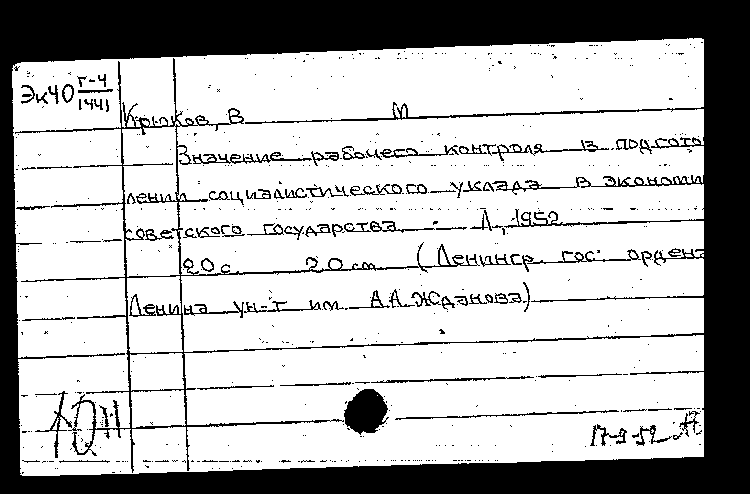 Эк40 Г-4
1441
Крюков, В М
Значение рабочего контроля в подгото
лении социалистического уклада в экономи
советского государства - Л, 1952
20 с. 20 см (Ленингр. гос. ордена
Ленина ун-т им А.А. Жданова)
17-9-52